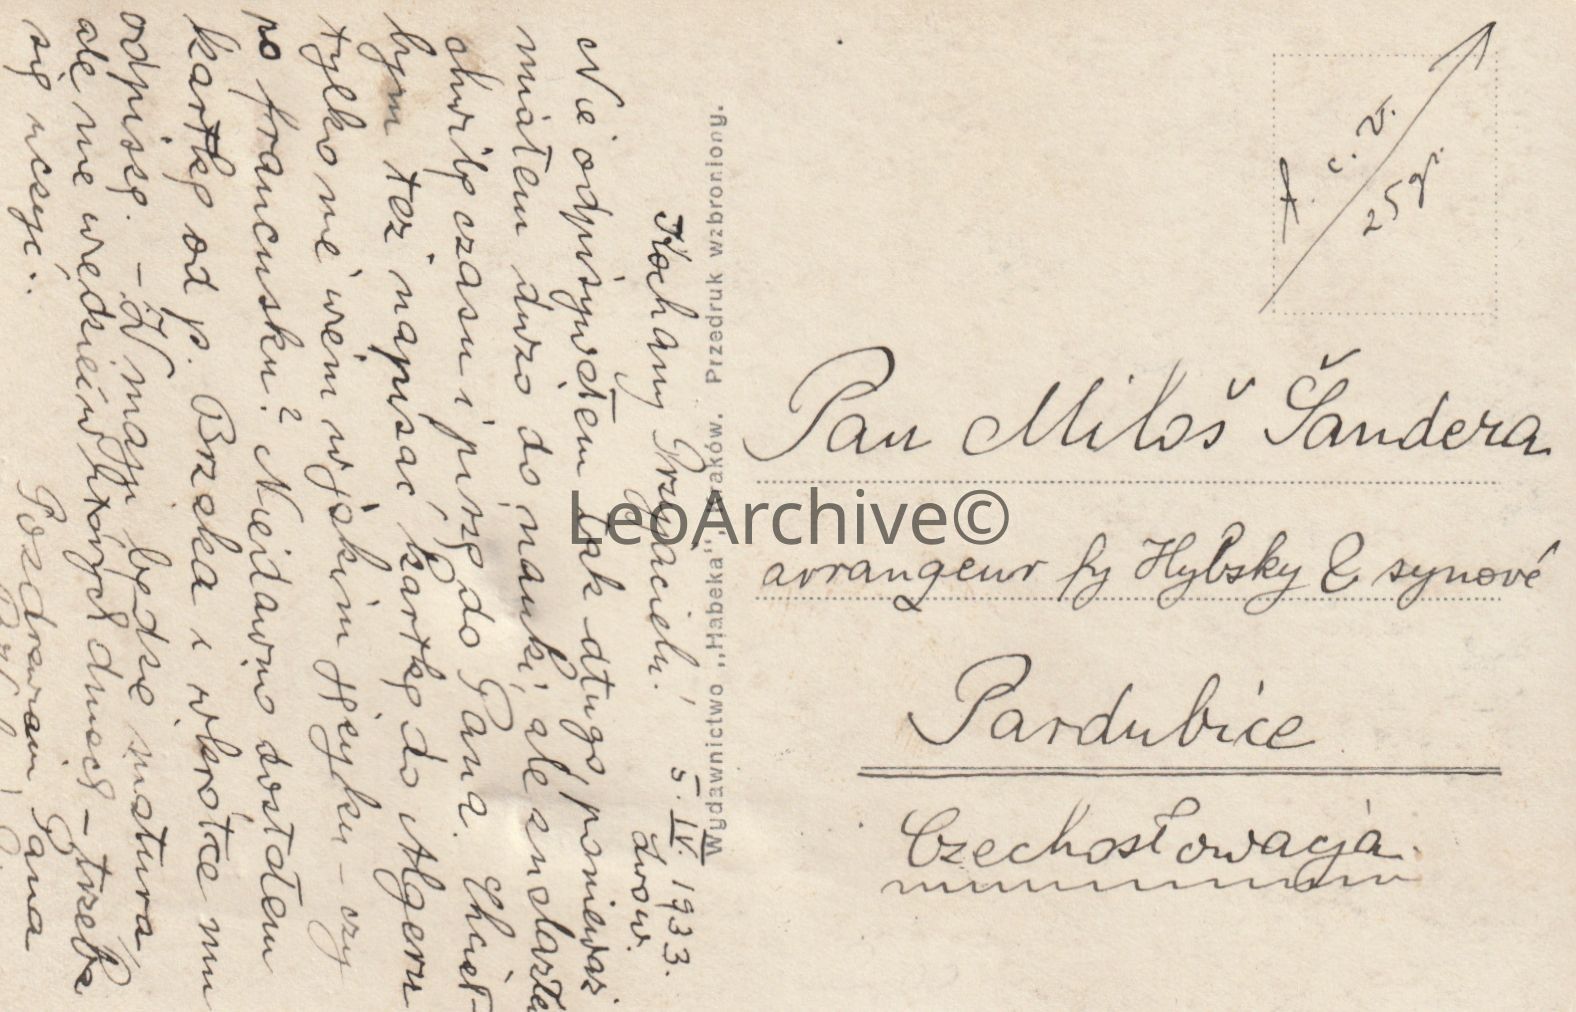 5. IV. 1933.
Lwów.
Kochany Przyjacielu!
Nie odpisywałem tak długo, ponieważ
miałem dużo do nauki, ale znalazłem
chwilę czasu i piszę do Pana. Chciał-
bym też napisać kartkę do Algeru
tylko nie wiem w jakim języku – czy
po francusku? Niedawno dostałem
kartkę od p. Brzeka i wkrótce mu
odpiszę. – W maju będzie matura
ale nie wiedzieć w których dniach – trzeba
się uczyć.
Pozdrawiam Pana
Wydawnictwo „Habeka”, Kraków. Przedruk wzbroniony.
25 gr.
Pan Miloš Šandera
arrangeur fy Hybsky & synové
Pardubice
Czechosłowacja.
LeoArchive©